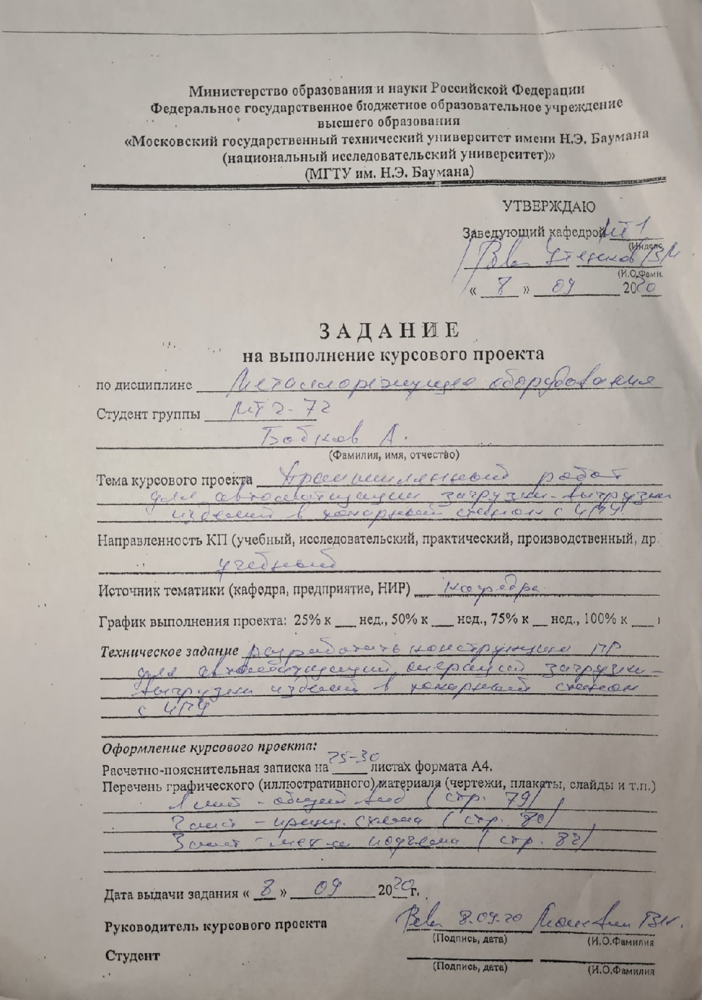 Министерство образования и науки Российской Федерации
Федеральное государственное бюджетное образовательное учреждение
высшего образования
«Московский государственный технический университет имени Н.Э. Баумана
(национальный исследовательский университет)»
(МГТУ им. Н.Э. Баумана)
УТВЕРЖДАЮ
Заведующий кафедрой МТ1
(Индекс
(И.О.Фами
« 8 » 09 2020
ЗАДАНИЕ
на выполнение курсового проекта
по дисциплине Металлорежущие оборудования
Студент группы МТ2-72
Бобков А.
(Фамилия, имя, отчество)
Тема курсового проекта Промышленный робот
для автоматизации загрузки-выгрузки
изделий в токарный станок с ЧПУ
Направленность КП (учебный, исследовательский, практический, производственный, др.
учебный
Источник тематики (кафедра, предприятие, НИР) кафедра
График выполнения проекта: 25% к ___ нед., 50% к ___ нед., 75% к ___ нед., 100% к ___
Техническое задание разработать конструкцию ПР
для автоматизации операций загрузки-
выгрузки изделий в токарный станок
с ЧПУ
Оформление курсового проекта:
Расчетно-пояснительная записка на 25-30 листах формата А4.
Перечень графического (иллюстративного) материала (чертежи, плакаты, слайды и т.п.)
1 лист - общий вид (стр. 79)
2 лист - принц. схема (стр. 80)
3 лист - мех-м подъема (стр. 82)
Дата выдачи задания « 8 » 09 2020г.
Руководитель курсового проекта 8.09.20
(Подпись, дата) (И.О.Фамилия
Студент
(Подпись, дата) (И.О.Фамилия